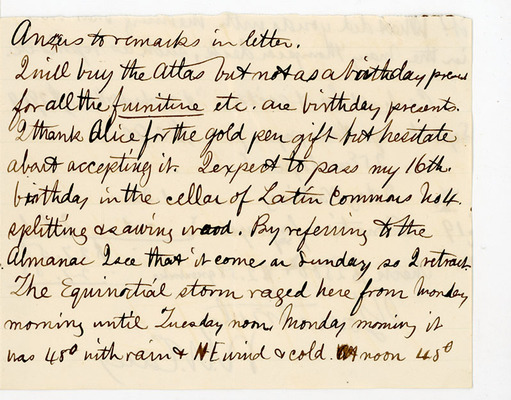 Ansrs to remarks in letter.
I will buy the Atlas but not as a birthday pres
for all the furniture etc. are birthday presents.
I thank Alice for the gold pen gift but hesitate
about accepting it. I expect to pass my 16th
birthday in the cellar of Latin Commons No 4.
splitting & sawing wood. By referring to the
Almanac I see that it comes on Sunday so I retract.
The Equinoctial storm raged here from Monday
morning until Tuesday noon. Monday morning it
was 48° with rain & NE wind & cold. At noon 48°